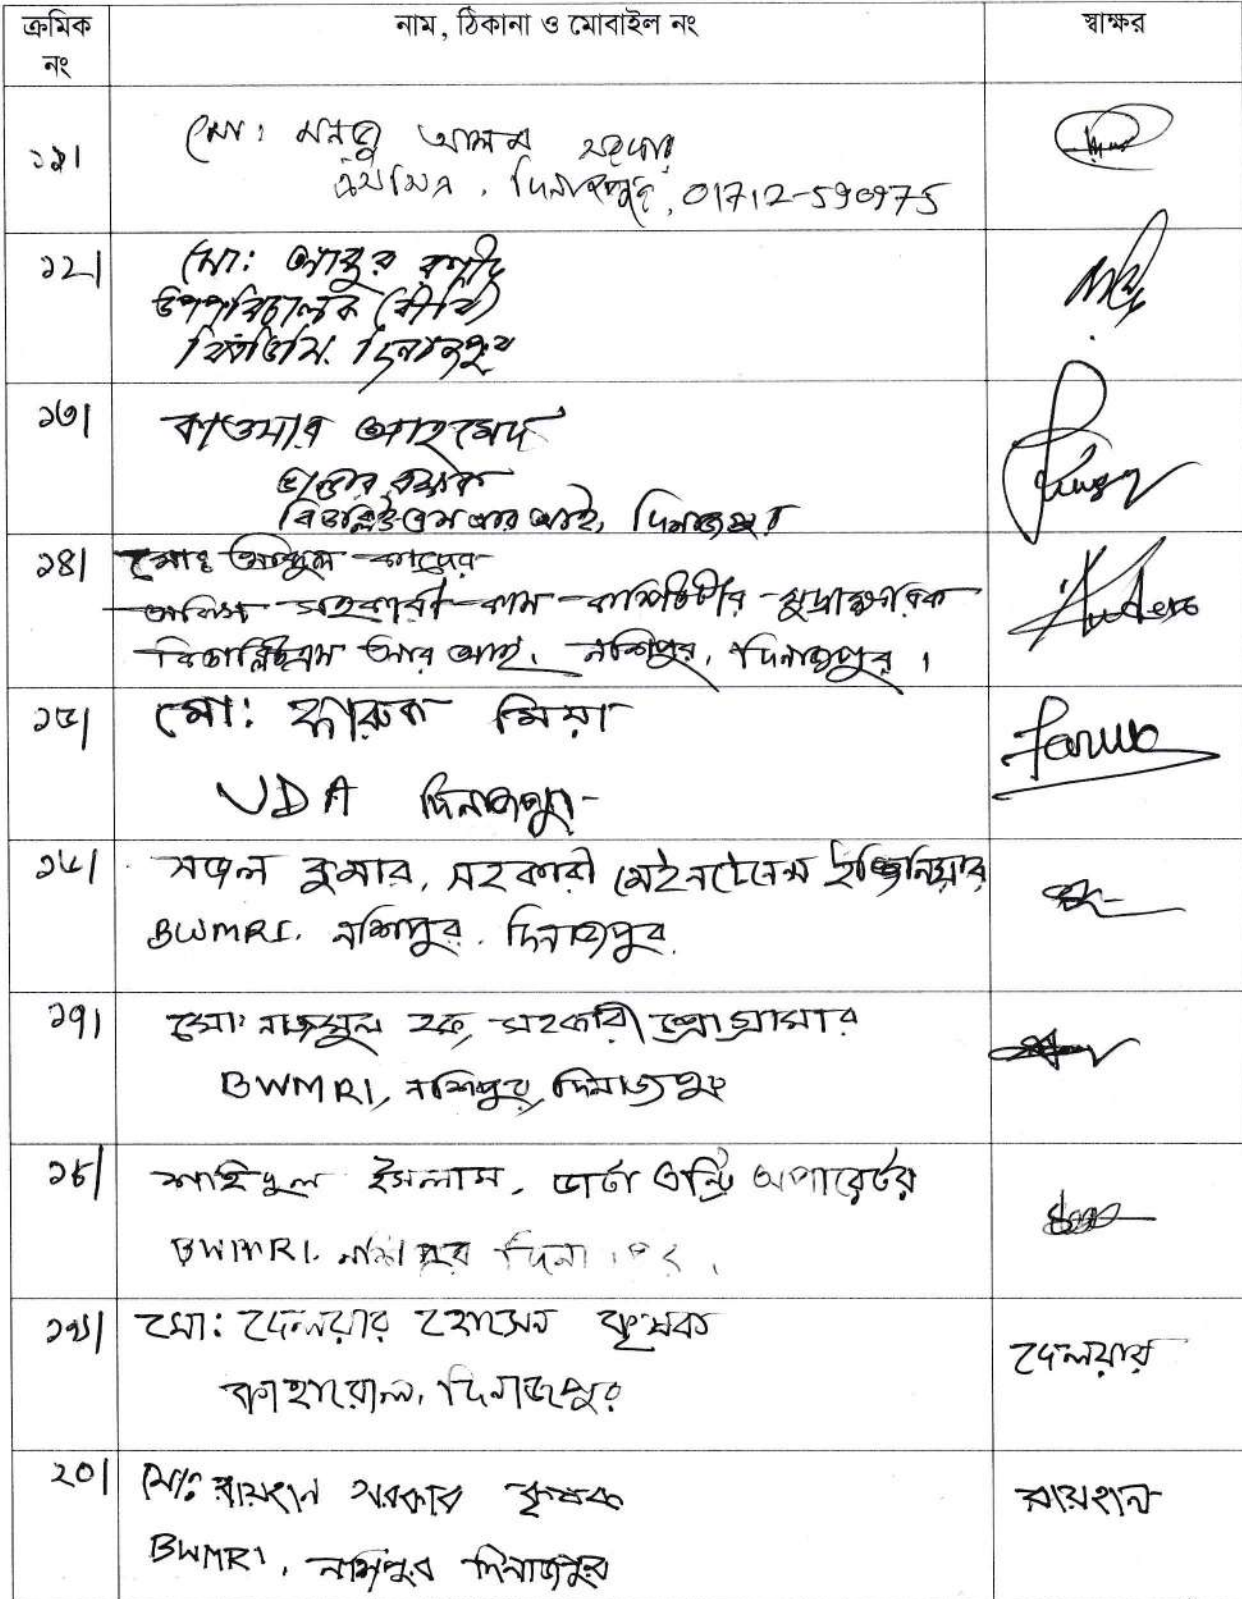 ক্রমিক নং
নাম, ঠিকানা ও মোবাইল নং
স্বাক্ষর
১১।
মো: মনজু আলম সরকার
দিনাজপুর, 01712-590975
১২।
মো: আব্দুর রশীদ
উপপরিচালক (বীবি)
দিনাজপুর
১৩।
কাওসার আহমেদ
ভান্ডার রক্ষক
বিডাব্লিউএমআরআই, দিনাজপুর
১৪।
মোঃ আব্দুল কাদের
অফিস সহকারী-কাম-কম্পিউটার মুদ্রাক্ষরিক
বিডাব্লিউএম আর আই, নশিপুর, দিনাজপুর।
Kudero
১৫।
মো: ফারুক মিয়া
UDA দিনাজপুর
Faruk
১৬।
সজল কুমার, সহকারী মেইনটেনেন্স ইঞ্জিনিয়ার
BWMRI. নশিপুর. দিনাজপুর.
১৭।
মো: নাজমুল হক, সহকারী প্রোগ্রামার
BWMRI, নশিপুর, দিনাজপুর
১৮।
শহিদুল ইসলাম, ডাটা এন্ট্রি অপারেটর
BWMRI. নশিপুর দিনাজপুর।
১৯।
মো: দেলয়ার হোসেন কৃষক
কাহারোল, দিনাজপুর
দেলয়ার
২০।
মো: রায়হান সরকার কৃষক
BWMRI, নশিপুর দিনাজপুর
রায়হান